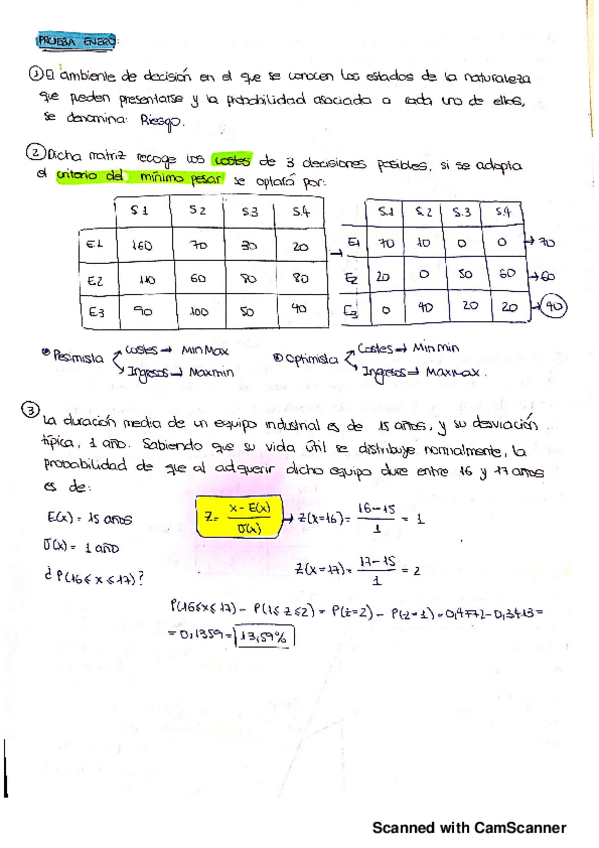 PRUEBA ENERO:
① El ambiente de decisión en el que se conocen los estados de la naturaleza
que pueden presentarse y la probabilidad asociada a cada uno de ellos,
se denomina: Riesgo.
② Dicha matriz recoge los costes de 3 decisiones posibles, si se adopta
el criterio del mínimo pesar se optará por:
S1 S2 S3 S4
E1 160 70 30 20
E2 110 60 80 80
E3 90 100 50 40
→
S1 S2 S3 S4
E1 70 10 0 0 → 70
E2 20 0 50 60 → 60
E3 0 40 20 20 → 40
Pesimista
Costes → MinMax
Ingresos → Maxmin
Optimista
Costes → Minmin
Ingresos → Maxmax.
③ La duración media de un equipo industrial es de 15 años, y su desviación
típica, 1 año. Sabiendo que su vida útil se distribuye normalmente, la
probabilidad de que al adquirir dicho equipo dure entre 16 y 17 años
es de:
E(x) = 15 años
σ(x) = 1 año
¿P(16≤x≤17)?
Z = x - E(x) / σ(x) → Z(x=16) = 16-15 / 1 = 1
Z(x=17) = 17-15 / 1 = 2
P(16≤x≤17) - P(1≤z≤2) = P(z=2) - P(z=1) = 0,4772 - 0,3413 =
= 0,1359 = 13,59%
Scanned with CamScanner